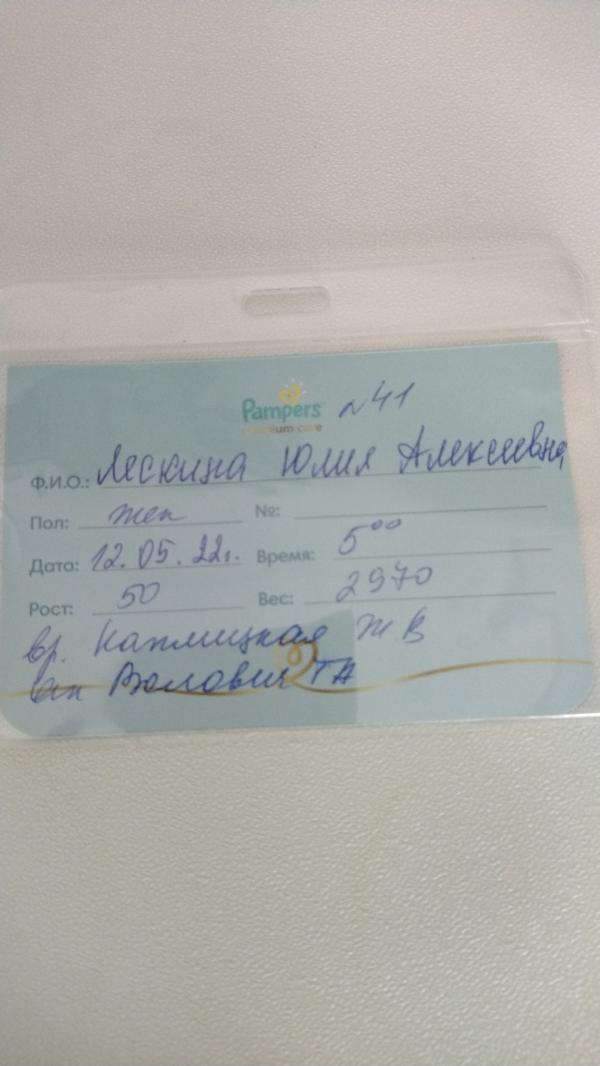 Pampers №41
premium care
Ф.И.О.: Лескина Юлия Алексеевна
Пол: жен №:
Дата: 12.05.22г. Время: 5⁰⁰
Рост: 50 Вес: 2970
вр. Каплицкая Ж В
ак Воловик ТА